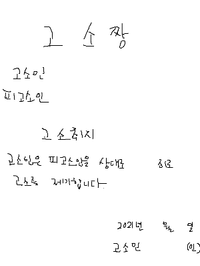 고 소 짱
고소인
피고소인
고소취지
고소인은 피고소인을 상대로 죄로
고소를 제기합니다
2021년 월 일
고소인 (인)